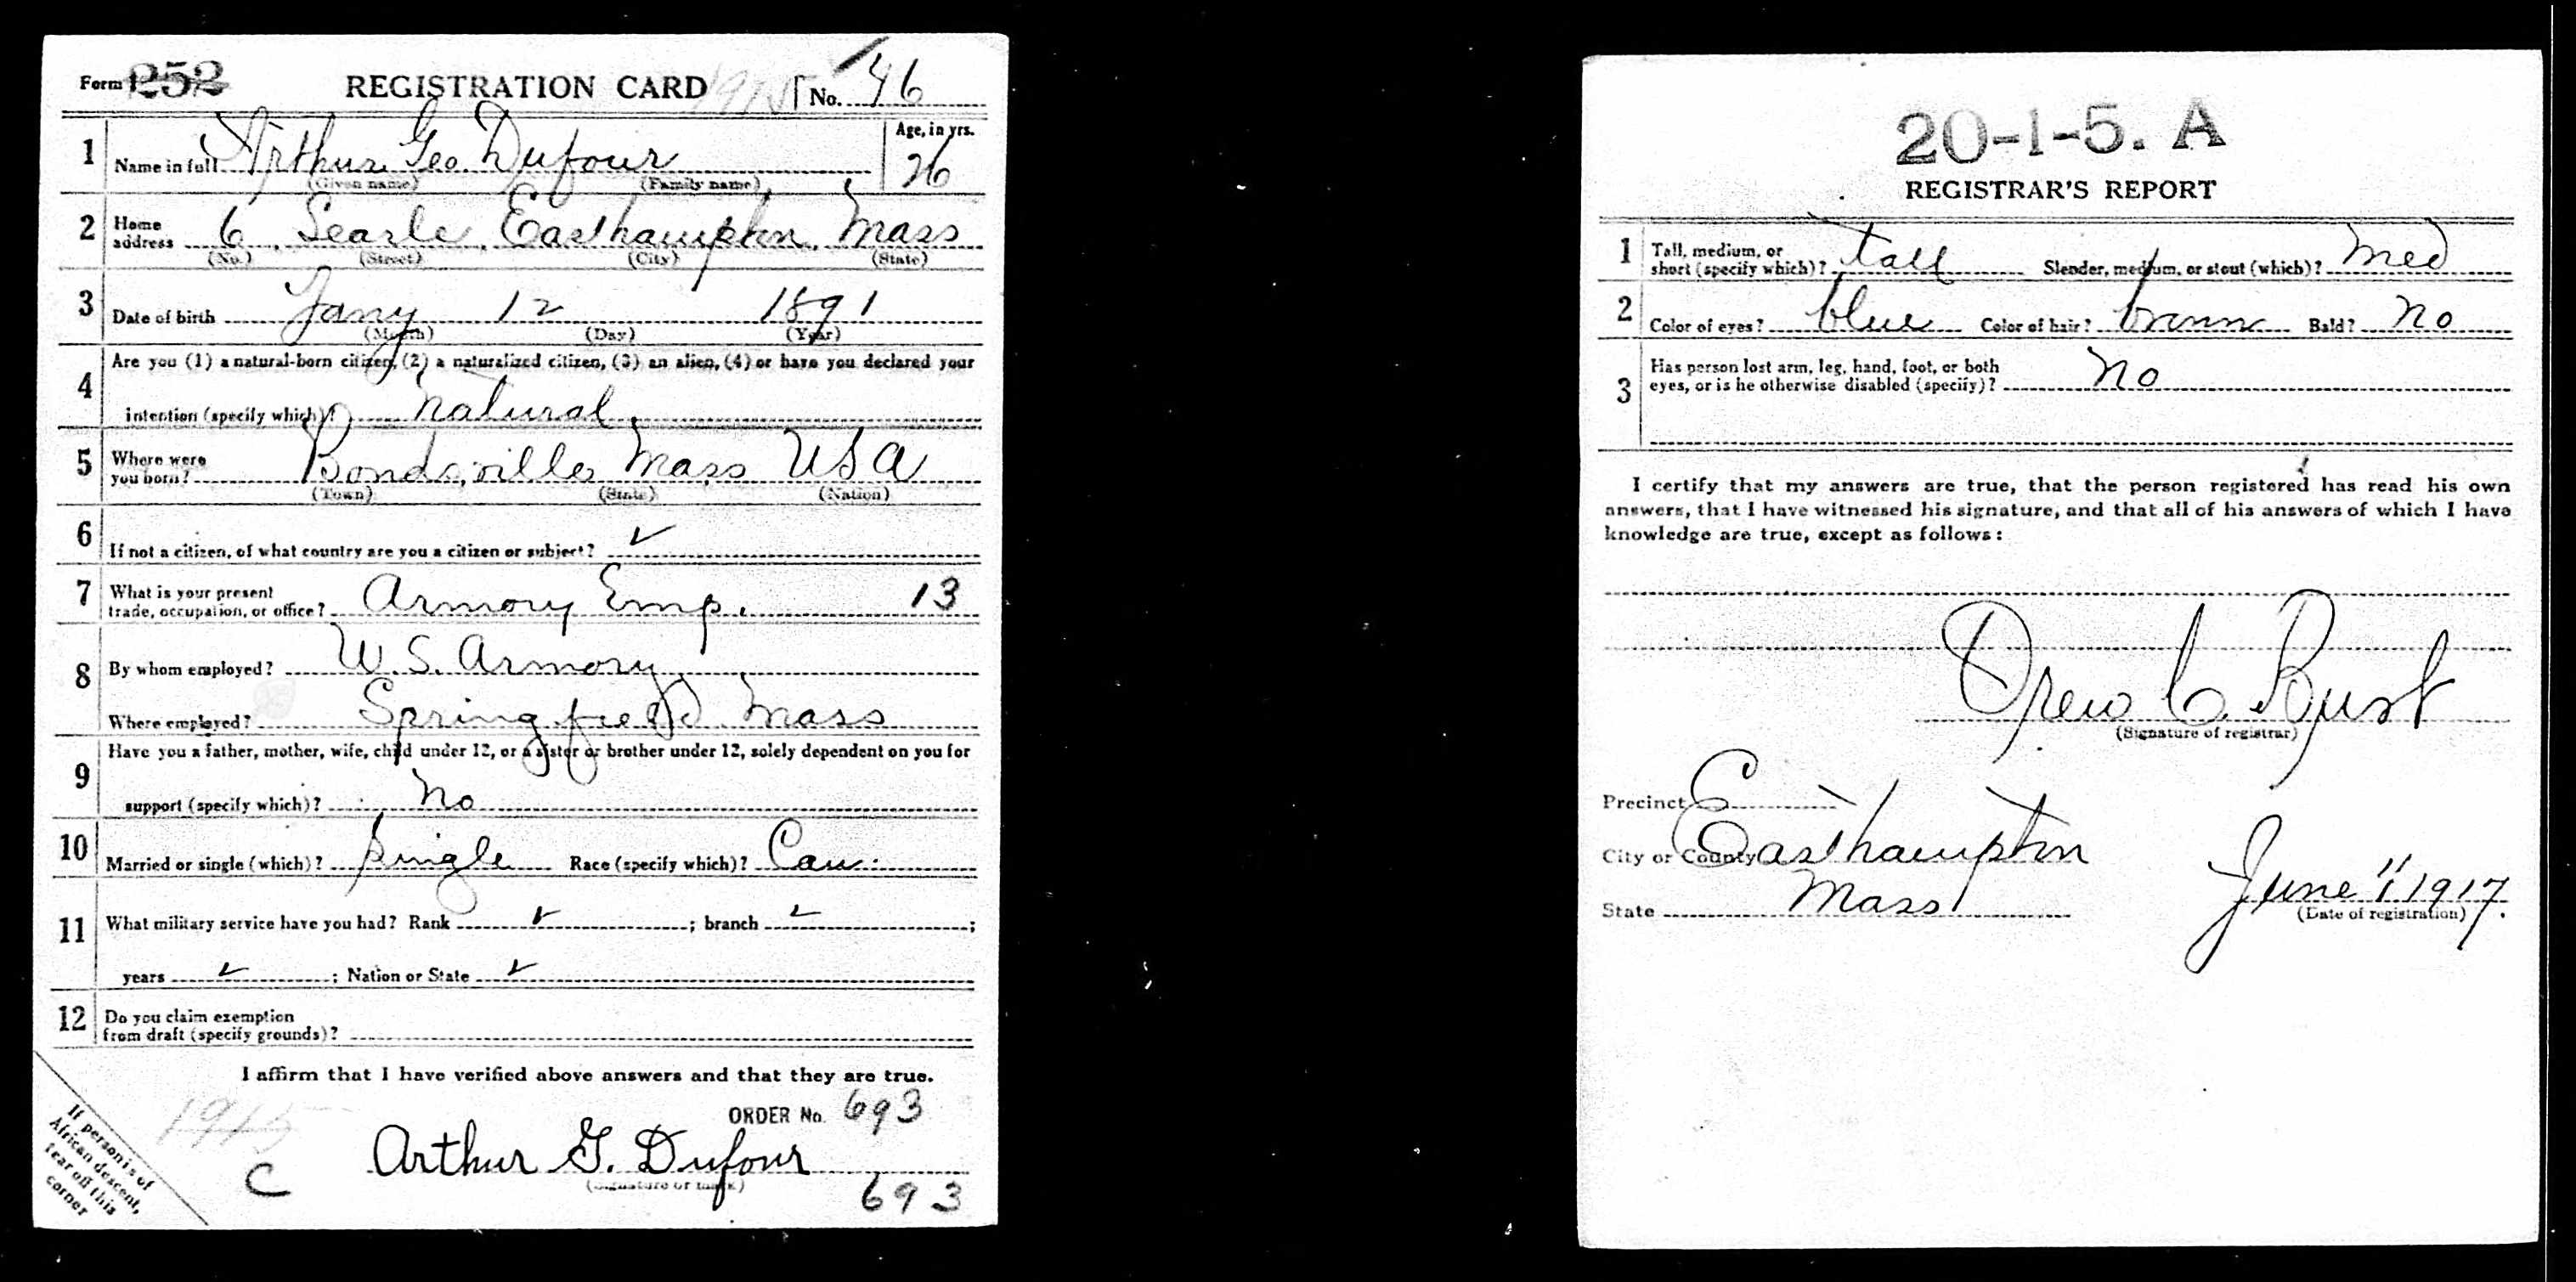 Form 1 252 REGISTRATION CARD No. 46
1 Name in full Arthur Geo. Dufour Age, in yrs. 26
(Given name) (Family name)
2 Home address 6 Searle, Easthampton, Mass
(No.) (Street) (City) (State)
3 Date of birth Jany 12 1891
(Month) (Day) (Year)
4 Are you (1) a natural-born citizen, (2) a naturalized citizen, (3) an alien, (4) or have you declared your
intention (specify which)? Natural
5 Where were you born? Bondsville Mass USA
(Town) (State) (Nation)
6 If not a citizen, of what country are you a citizen or subject? ✓
7 What is your present trade, occupation, or office? Armory Emp. 13
8 By whom employed? U.S. Armory
Where employed? Springfield Mass
9 Have you a father, mother, wife, child under 12, or a sister or brother under 12, solely dependent on you for
support (specify which)? No
10 Married or single (which)? Single Race (specify which)? Cau.
11 What military service have you had? Rank ✓ ; branch ✓ ;
years ✓ ; Nation or State ✓
12 Do you claim exemption
from draft (specify grounds)?
I affirm that I have verified above answers and that they are true.
ORDER No. 693
C Arthur G. Dufour
(Signature or mark) 693
If person is of
African descent,
tear off this
corner
20-1-5. A
REGISTRAR'S REPORT
1 Tall, medium, or short (specify which)? Tall Slender, medium, or stout (which)? Med
2 Color of eyes? blue Color of hair? brown Bald? No
3 Has person lost arm, leg, hand, foot, or both
eyes, or is he otherwise disabled (specify)? No
I certify that my answers are true, that the person registered has read his own
answers, that I have witnessed his signature, and that all of his answers of which I have
knowledge are true, except as follows:
Drew C.
(Signature of registrar)
Precinct
City or County Easthampton
State Mass June 1917.
(Date of registration)